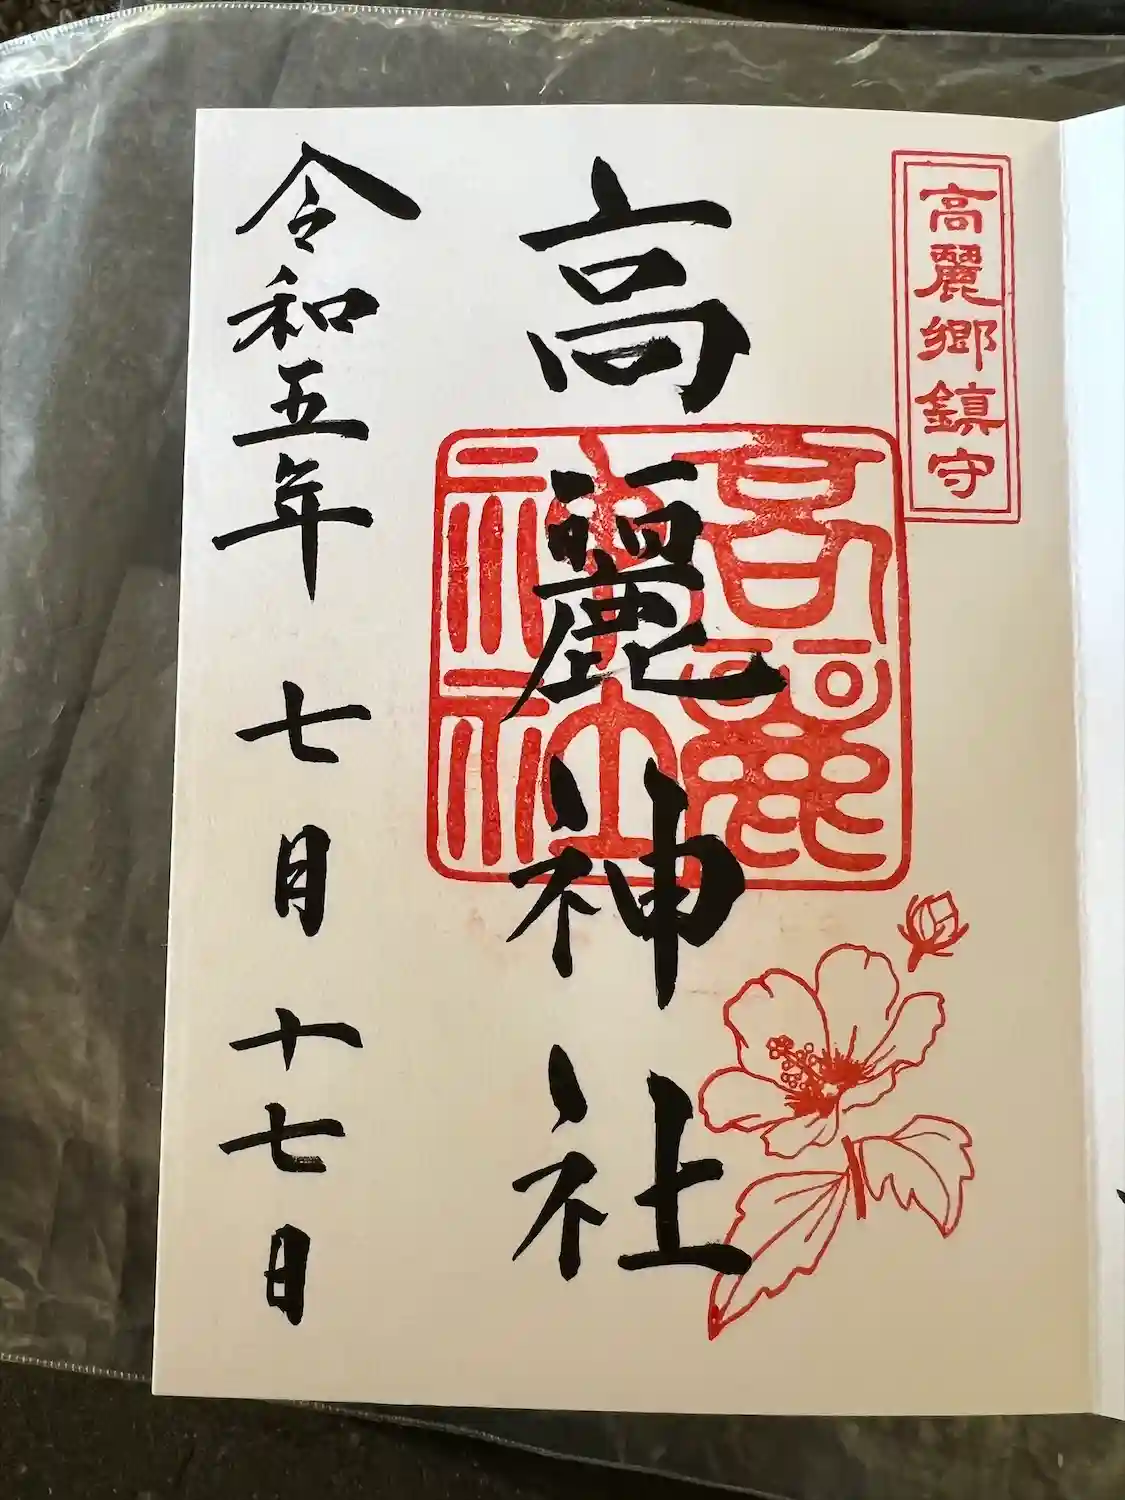 高麗郷鎮守
高麗神社
高麗神社
令和五年 七月 十七日